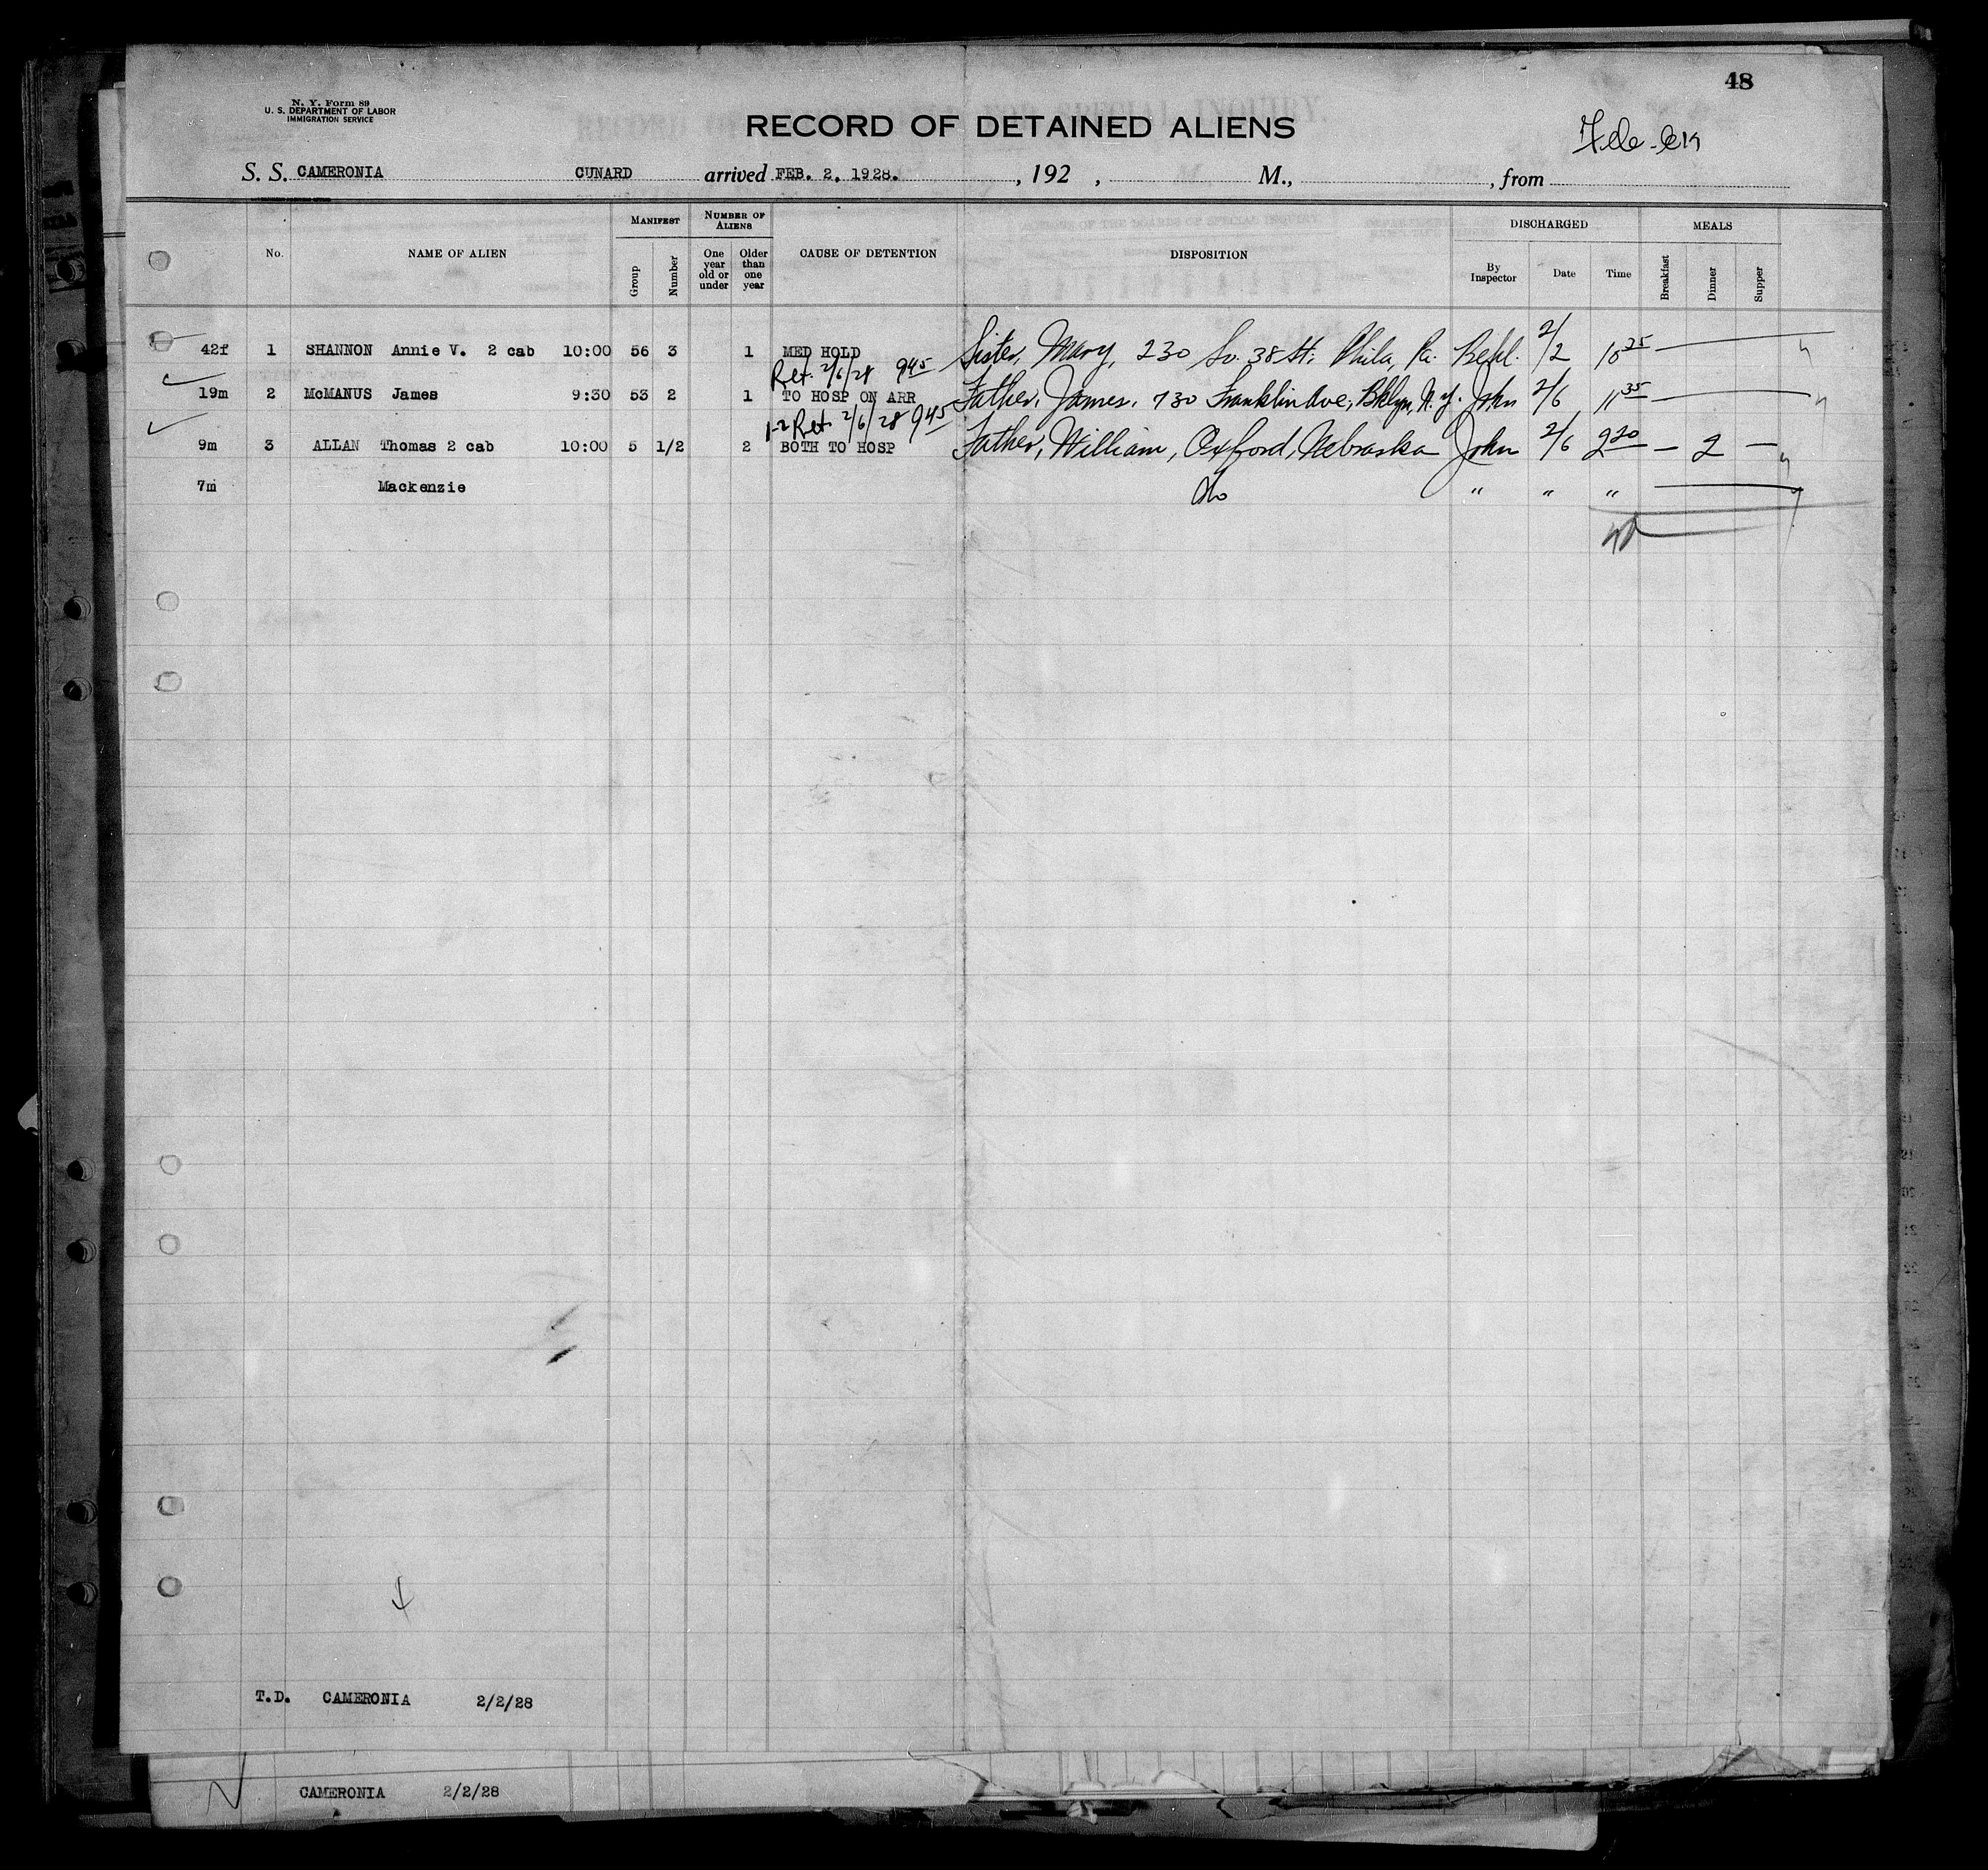 48
N. Y. Form 89
U. S. DEPARTMENT OF LABOR
IMMIGRATION SERVICE
RECORD OF DETAINED ALIENS
S. S. CAMERONIA CUNARD arrived FEB. 2, 1928. , 192 , M., , from
No. NAME OF ALIEN MANIFEST Group Number NUMBER OF ALIENS One year old or under Older than one year CAUSE OF DETENTION DISPOSITION DISCHARGED By Inspector Date Time MEALS Breakfast Dinner Supper
42f 1 SHANNON Annie V. 2 cab 10:00 56 3 1 MED HOLD Sister, Mary, 230 So. 38 St. Phila, Pa. 2/2 10 25
Ret. 2/6/28 9 45
19m 2 McMANUS James 9:30 53 2 1 TO HOSP ON ARR Father, James. 730 Franklin Ave, Bklyn, N. Y. John 2/6 11 35
1-2 Ret. 2/6/28 9 45
9m 3 ALLAN Thomas 2 cab 10:00 5 1/2 2 BOTH TO HOSP Father, William, Oxford, Nebraska John 2/6 2 20 — 2 —
7m Mackenzie Do " " "
T.D. CAMERONIA 2/2/28
CAMERONIA 2/2/28